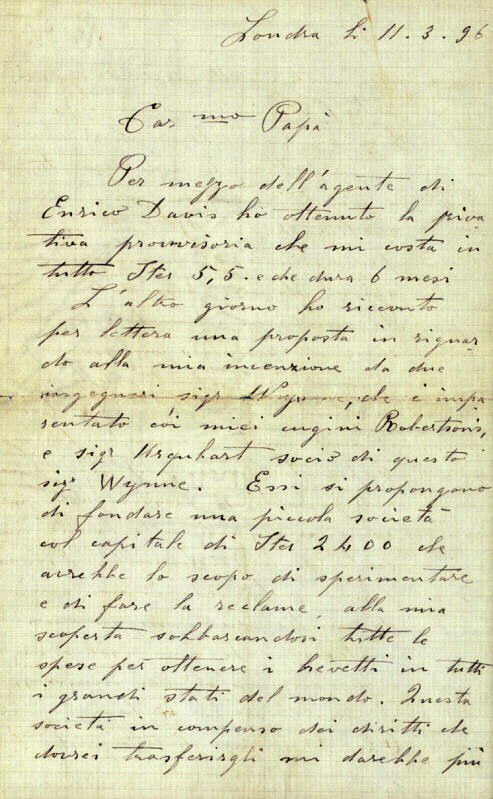 Londra li 11.3.96
Car mo Papà
Per mezzo dell'agente di
Enrico Davis ho ottenuto la priva
tiva provvisoria che mi costa in
tutto Ster 5,5. e che dura 6 mesi
L'altro giorno ho ricevuto
per lettera una proposta in riguar
do alla mia invenzione da due
ingegneri sigr Wynne, che è impa
rentato coi miei cugini Robertson's,
e sigr Urquhart socio di questo
sigr Wynne. Essi si propongono
di fondare una piccola società
col capitale di Ster 2400 che
avrebbe lo scopo di sperimentare
e di fare la reclame, alla mia
scoperta sobbarcandosi tutte le
spese per ottenere i brevetti in tutti
i grandi stati del mondo. Questa
società in compenso dei diritti che
dovrei trasferirgli mi darebbe più